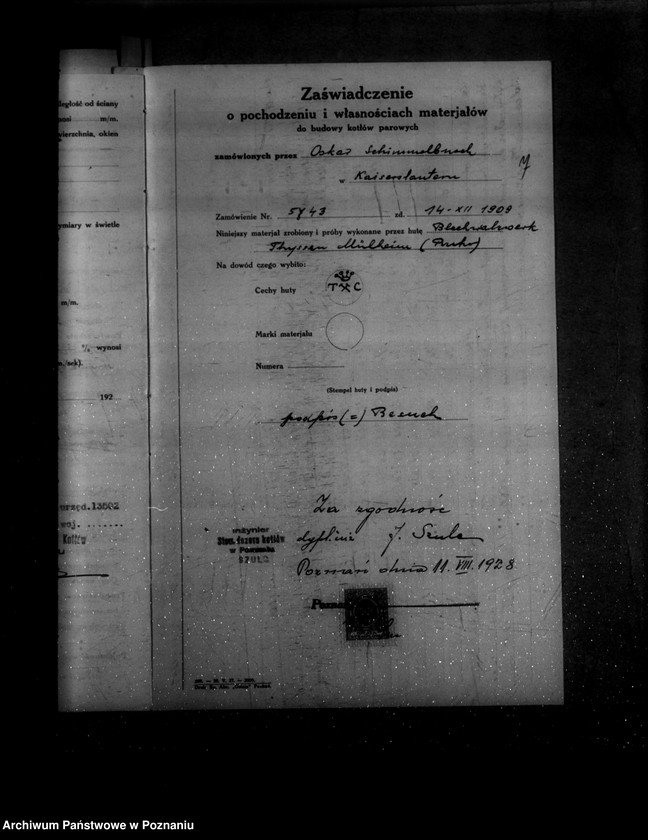 ległość od ściany
m/m.
ierzchnia, okien
ymiary w świetle
m/m.
% wynosi
192
Zaświadczenie
o pochodzeniu i własnościach materjałów
do budowy kotłów parowych
zamówionych przez Oskar Schimmelbusch
w Kaiserslautern
Zamówienie Nr. 5743 zd. 14-XII 1909
Niniejszy materjał zrobiony i próby wykonane przez hutę Blechwalzwerk
Thyssen Mülheim (Ruhr)
Na dowód czego wybito:
Cechy huty T C
Marki materjału
Numera
(Stempel huty i podpis)
podpis (=)
Za zgodność
inżynier
Stow. dozoru kotłów
w Poznaniu
dypl. inż J. Szulc
Poznań dnia 11. VIII. 1928
Archiwum Państwowe w Poznaniu